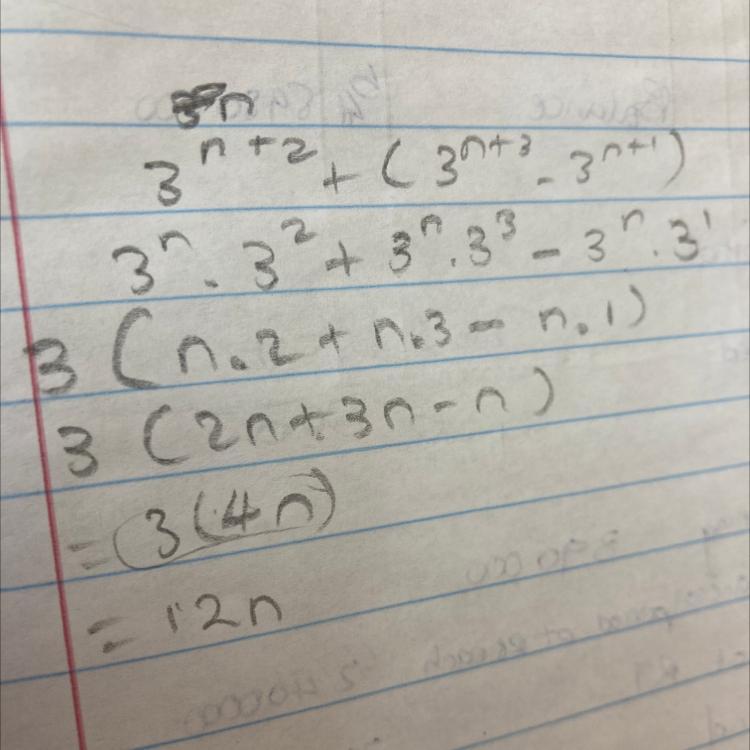 n
3^{n+2} + (3^{n+3} - 3^{n+1})
3^n . 3^2 + 3^n . 3^3 - 3^n . 3^1
3 (n.2 + n.3 - n.1)
3 (2n + 3n - n)
= 3(4n)
= 12n